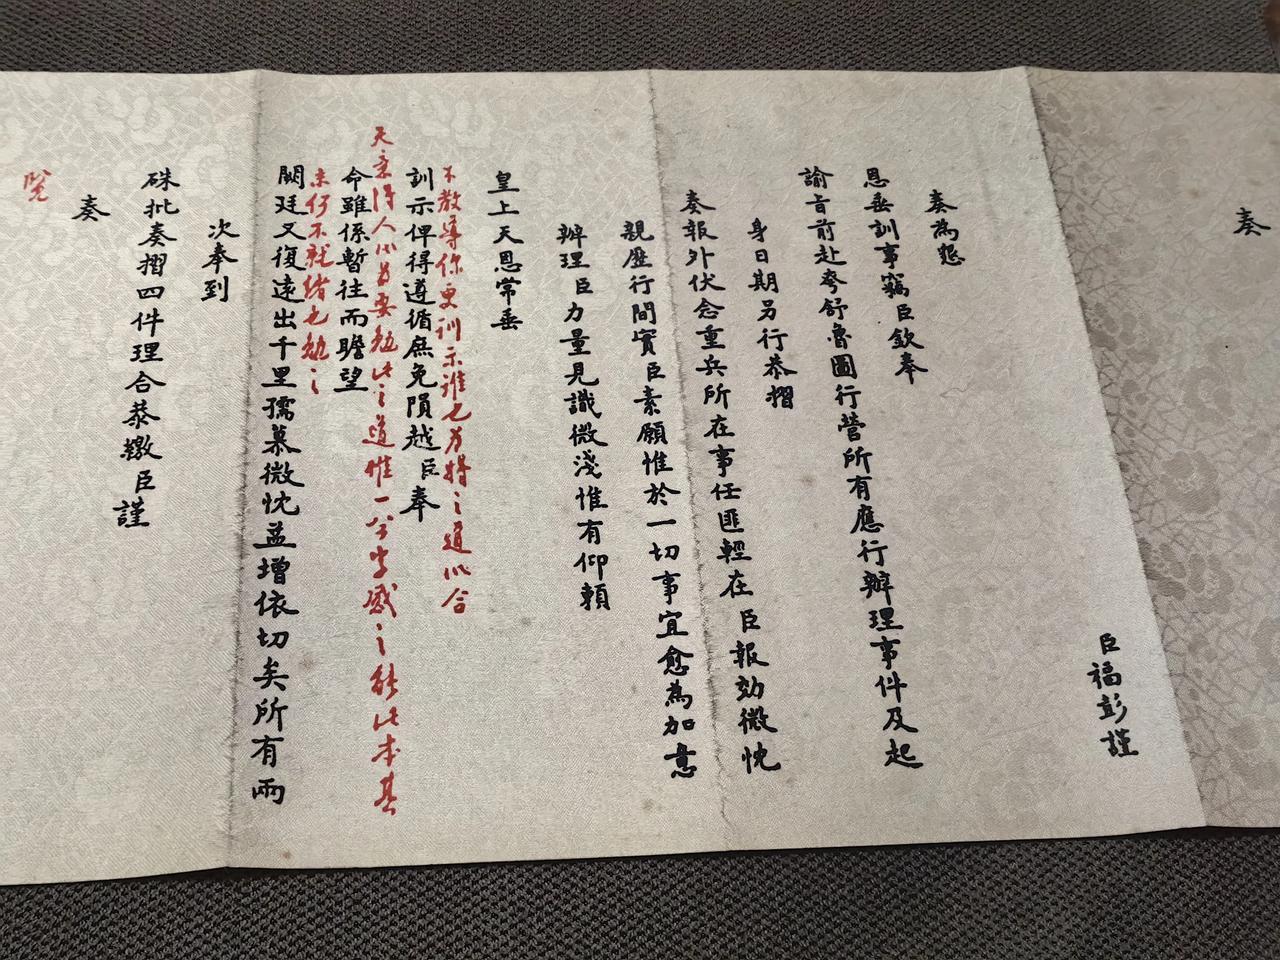 奏
臣福彭謹
奏為懇
恩垂訓事竊臣欽奉
諭旨前赴夸舒魯圖行營所有應行辦理事件及起
身日期另行恭摺
奏報外伏念重兵所在事任匪輕在臣報効微忱
親歷行間實臣素願惟於一切事宜愈為加意
辦理臣力量見識微淺惟有仰賴
皇上天恩常垂
不教導你更訓示誰也為將之道以合
訓示俾得遵循庶免隕越臣奉
天意得人心為要勉此之道惟一公字感之能此本其
命雖係暫往而瞻望
未何不就緒也勉之
闕廷又復遠出千里孺慕微忱益增依切矣所有兩
次奉到
硃批奏摺四件理合恭繳臣謹
奏
覽